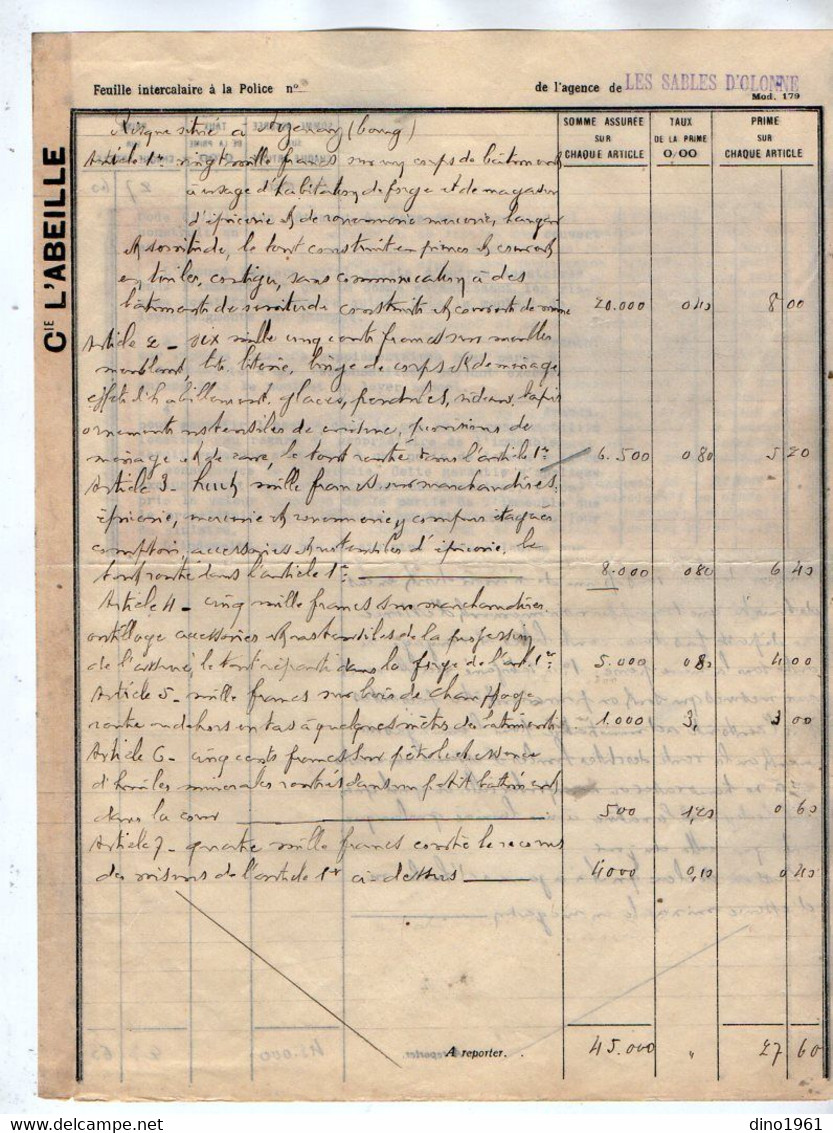 Feuille intercalaire à la Police n°
de l'agence de LES SABLES D'OLONNE
Mod. 179
Cie L'ABEILLE
SOMME ASSURÉE SUR CHAQUE ARTICLE
TAUX DE LA PRIME 0/00
PRIME SUR CHAQUE ARTICLE
Risque situé à (bourg)
Article 1er vingt mille francs sur un corps de bâtiments
à usage d'habitation, de forge et de magasin
d'épicerie et de rouennerie mercerie, hangar
et servitude, le tout construit en pierres et couvert
en tuiles, contigu, sans communication à des
bâtiments de servitude construits et couverts de même 20.000 0,40 8 00
Article 2 - six mille cinq cents francs sur meubles
meublant, lits, literie, linge de corps et de ménage
effets d'habillement, glaces, pendules, rideaux, tapis
ornements ustensiles de cuisine, provisions de
ménage et de cave, le tout rentré dans l'article 1er 6.500 0 80 5 20
Article 3 - huit mille francs sur marchandises,
épicerie, mercerie et rouennerie y compris étagères
comptoir, accessoires et ustensiles d'épicerie, le
tout rentré dans l'article 1er 8.000 0 80 6 40
Article 4 - cinq mille francs sur marchandises
outillage accessoires et ustensiles de la profession
de l'assuré, le tout réparti dans la forge de l'art. 1er 5.000 0 80 4 00
Article 5 - mille francs sur bois de chauffage
rentré en dehors en tas à quelques mètres des bâtiments 1.000 3, 3 00
Article 6 - cinq cents francs sur pétrole et essence
d'huiles minérales rentrés dans un petit bâtiment
dans la cour 500 1,20 0 60
Article 7 - quatre mille francs contre le recours
des voisins de l'article 1er ci-dessus 4000 0,10 0 40
A reporter. . 45.000 " 27 60
dino1961